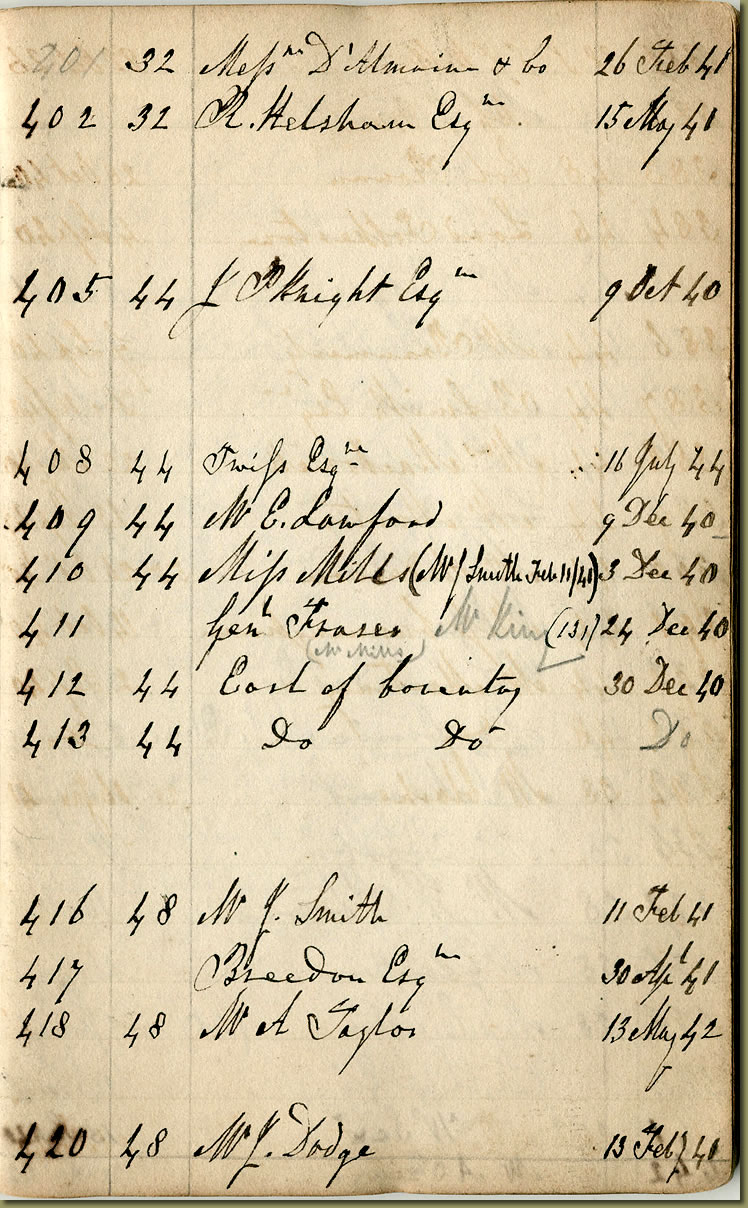 401 32 Messrs D'Almaine & Co 26 Feb 41
402 32 R. Helsham Esqre 15 May 41
405 44 J P Knight Esqre 9 Oct 40
408 44 Twiss Esqre 16 July 44
409 44 Mr E. Lawford 9 Dec 40
410 44 Miss Mills (Mr J Smith Feb 11/41) 3 Dec 40
411 Genl Fraser Mr King (131) 24 Dec 40
(Mr Mills)
412 44 Earl of Coventry 30 Dec 40
413 44 Do Do Do
416 48 Mr J. Smith 11 Feb 41
417 Breedon Esqre 30 Apl 41
418 48 Mr A Taylor 13 May 42
420 48 Mr J. Dodge 13 Feby 41